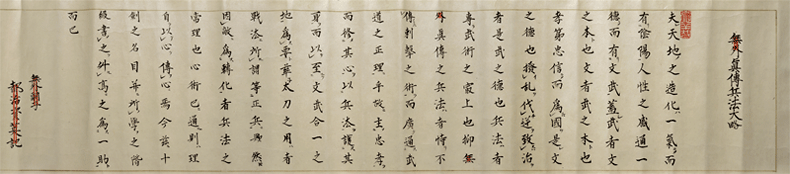 無外真傳兵法大略
夫天地之造化一氣而
有陰陽人性之感通一
德而有文武蓋武者文
之本也文者武之本也
孝第忠信而為國是文
之德也撥乱伐逆致治
者是武之德也兵法者
專武術之最上也抑無
外真傳之兵法者恃不
傳刺擊之術而廣通武
道之正理乎故主忠孝
而修其心以兵法護其
身而以至文武合一之
地為要乖太刀之用者
戰法所謂等正兵然
因敵為轉化者兵法之
當理也心術已通則理
自以心傳心焉今茲十
劍之名目并所學之階
級書之外高之為一助
而已
無外
都治記